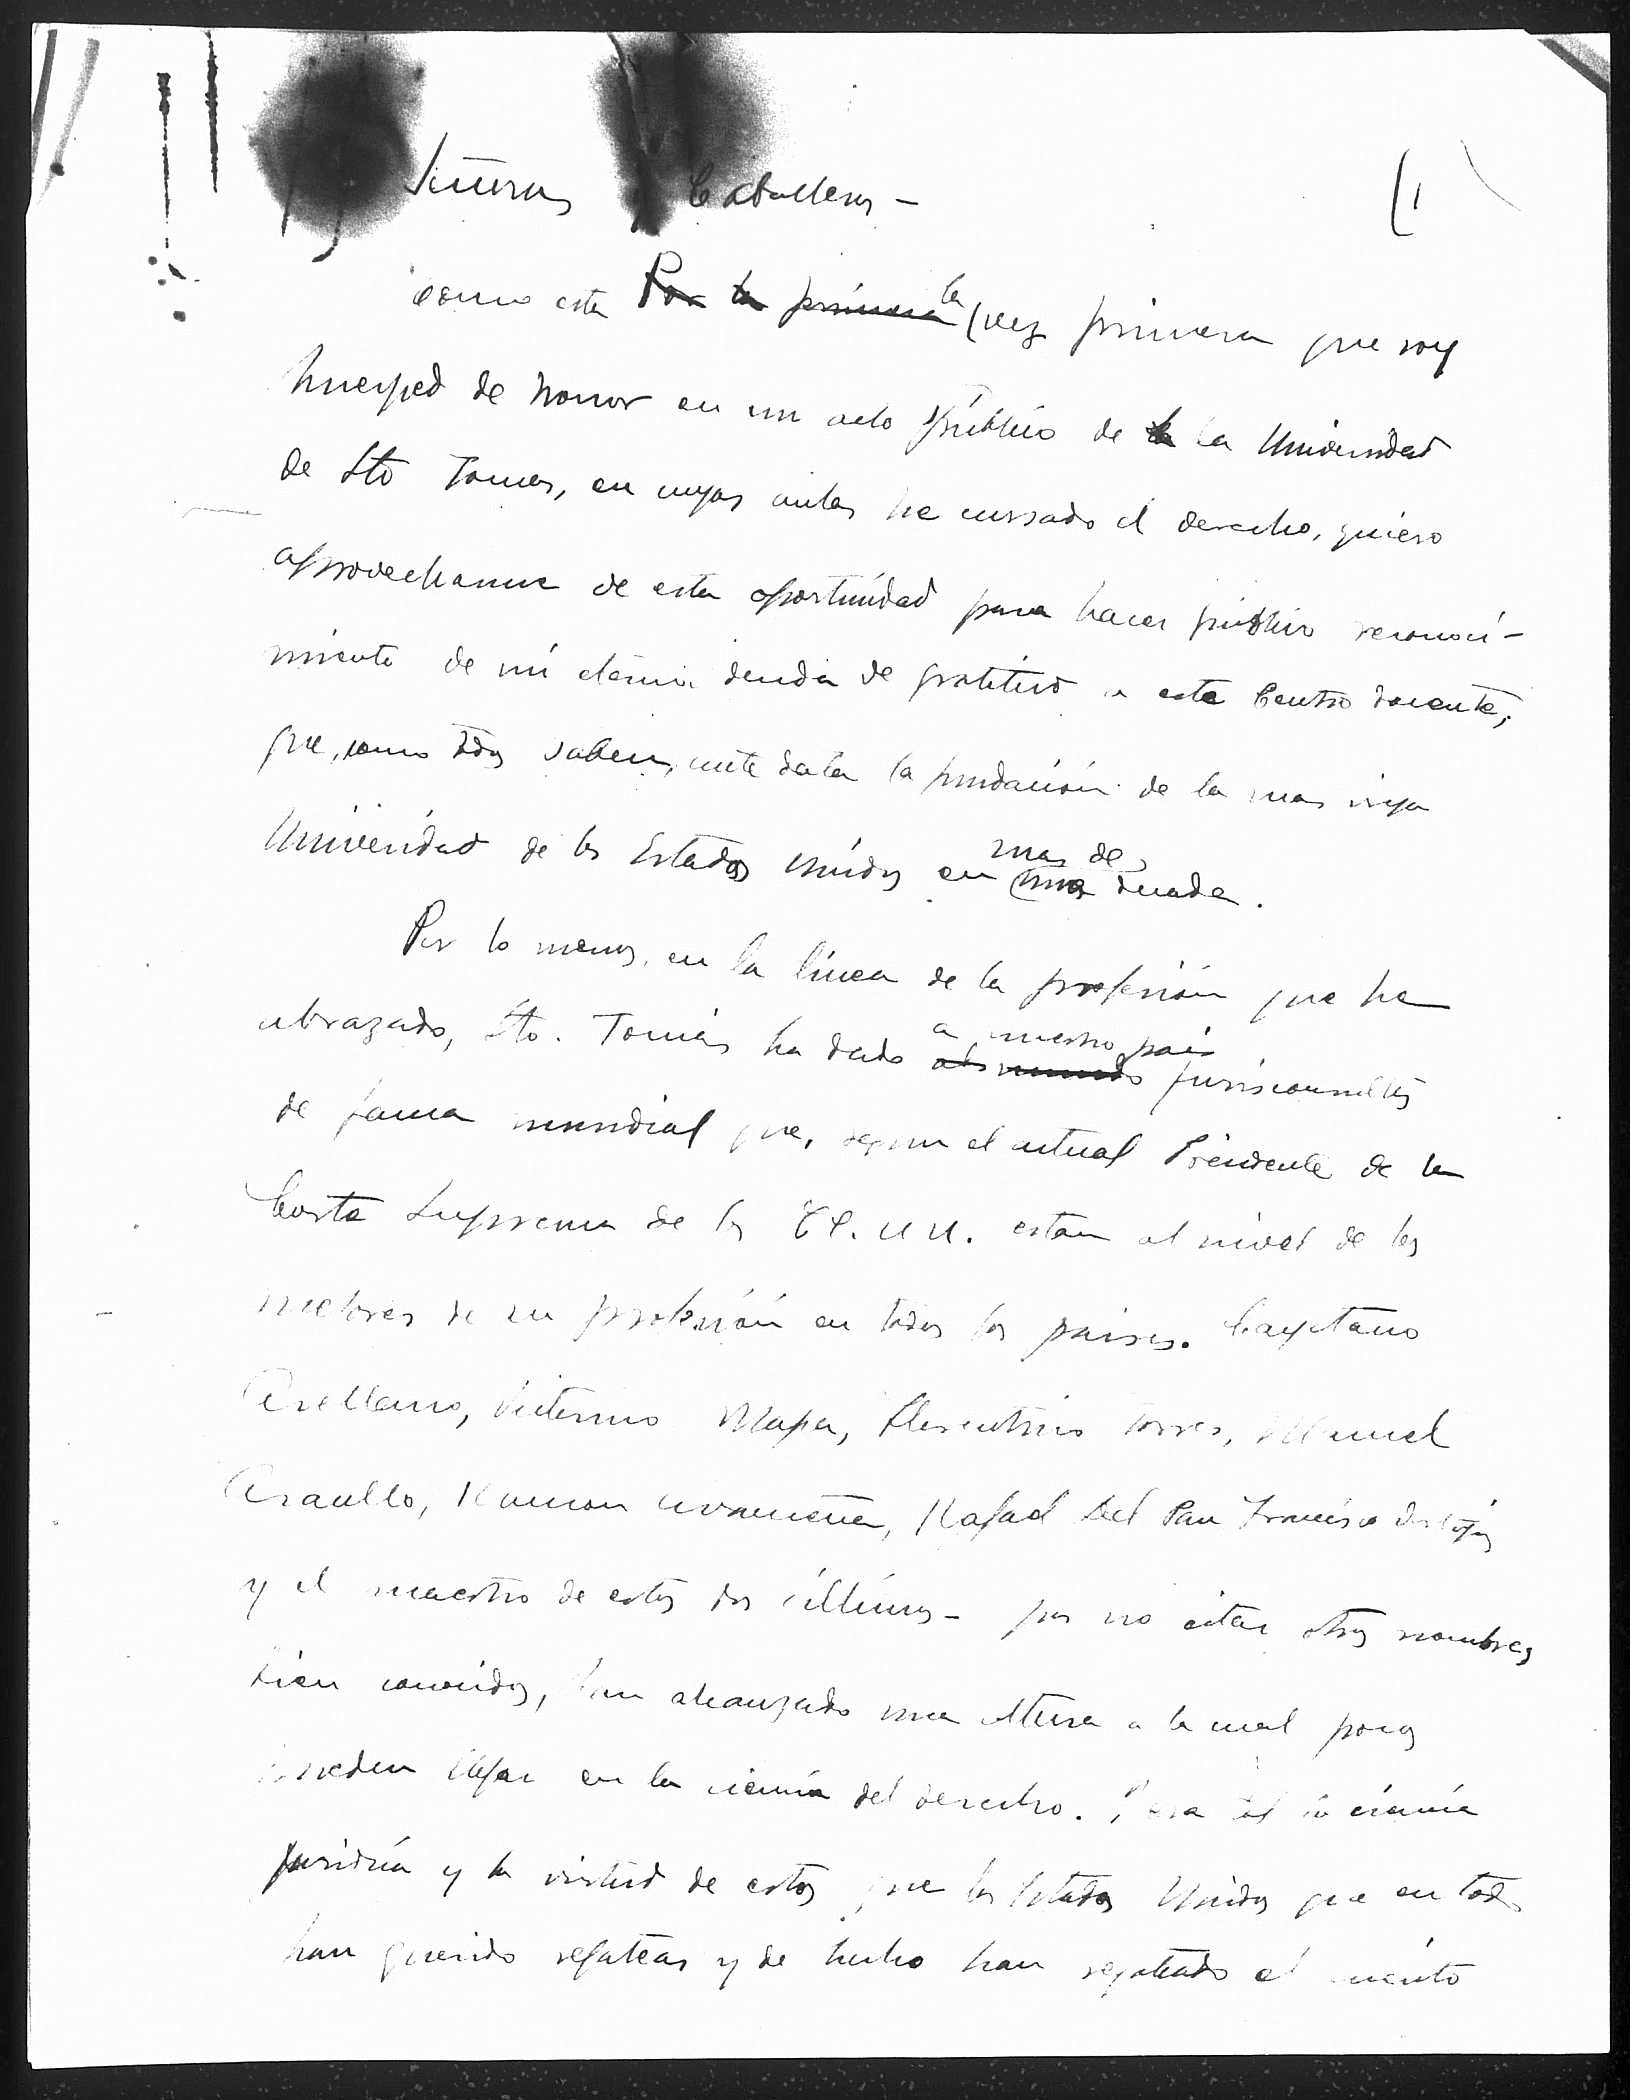 Señoras Caballeros - (1
Como esta Por la primera la vez primera que soy
huesped de honor en un acto público de la la Universidad
de Sto Tomas, en cuyas aulas he cursado el derecho, quiero
aprovecharme de esta oportunidad para hacer público reconoci-
miento de mi eterna deuda de gratitud a este Centro docente,
que, como todos saben, antedata la fundación de la mas vieja
Universidad de los Estados Unidos en mas de una decada.
Por lo menos, en la línea de la profesión que he
abrazado, Sto. Tomás ha dado al mundo a nuestro pais jurisconsultos
de fama mundial que, segun el actual Presidente de la
Corte Suprema de los EE. UU. estan al nivel de los
mejores de su profesión en todos los paises. Cayetano
Arellano, Victorino Mapa, Florentino Torres, Manuel
Araullo, Ramon Avanceña, Rafael Del Pan Francisco
y el maestro de estos dos últimos - por no citar otros nombres
bien conocidos, han alcanzado una altura a la cual pocos
pueden llegar en la ciencia del derecho. Y era tal la ciencia
juridica y la virtud de estos que los Estados Unidos que en todo
han querido regatear y de hecho han regateado el merito